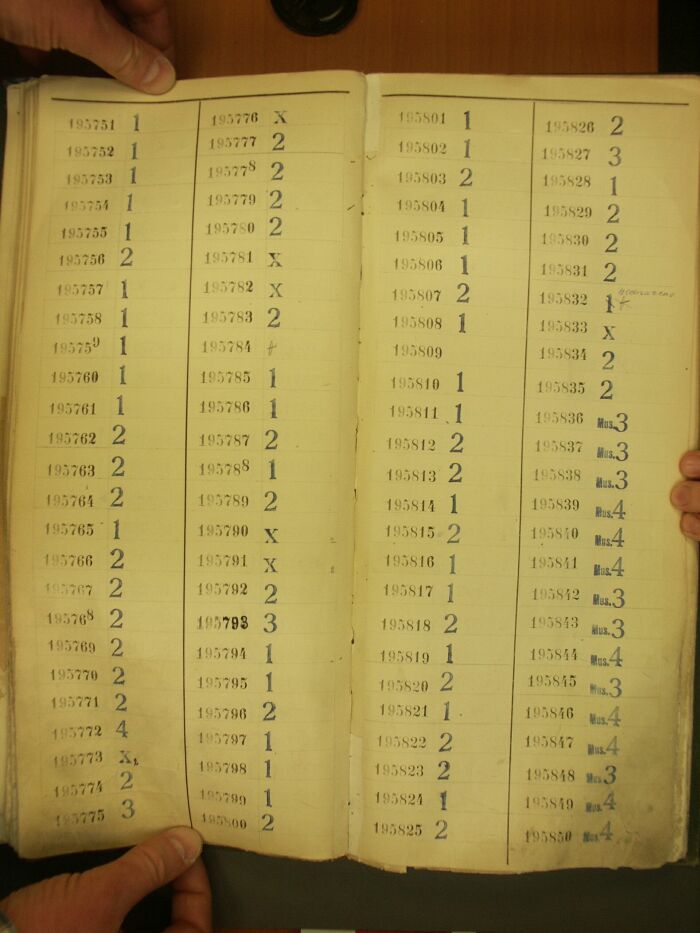 195751 1
195752 1
195753 1
195754 1
195755 1
195756 2
195757 1
195758 1
195759 1
195760 1
195761 1
195762 2
195763 2
195764 2
195765 1
195766 2
195767 2
195768 2
195769 2
195770 2
195771 2
195772 4
195773 X
195774 2
195775 3
195776 X
195777 2
195778 2
195779 2
195780 2
195781 X
195782 X
195783 2
195784 +
195785 1
195786 1
195787 2
195788 1
195789 2
195790 X
195791 X
195792 2
195793 3
195794 1
195795 1
195796 2
195797 1
195798 1
195799 1
195800 2
195801 1
195802 1
195803 2
195804 1
195805 1
195806 1
195807 2
195808 1
195809
195810 1
195811 1
195812 2
195813 2
195814 1
195815 2
195816 1
195817 1
195818 2
195819 1
195820 2
195821 1
195822 2
195823 2
195824 1
195825 2
195826 2
195827 3
195828 1
195829 2
195830 2
195831 2
195832 1 +
195833 X
195834 2
195835 2
195836 Mus.3
195837 Mus.3
195838 Mus.3
195839 Mus.4
195840 Mus.4
195841 Mus.4
195842 Mus.3
195843 Mus.3
195844 Mus.4
195845 Mus.3
195846 Mus.4
195847 Mus.4
195848 Mus.3
195849 Mus.4
195850 Mus.4